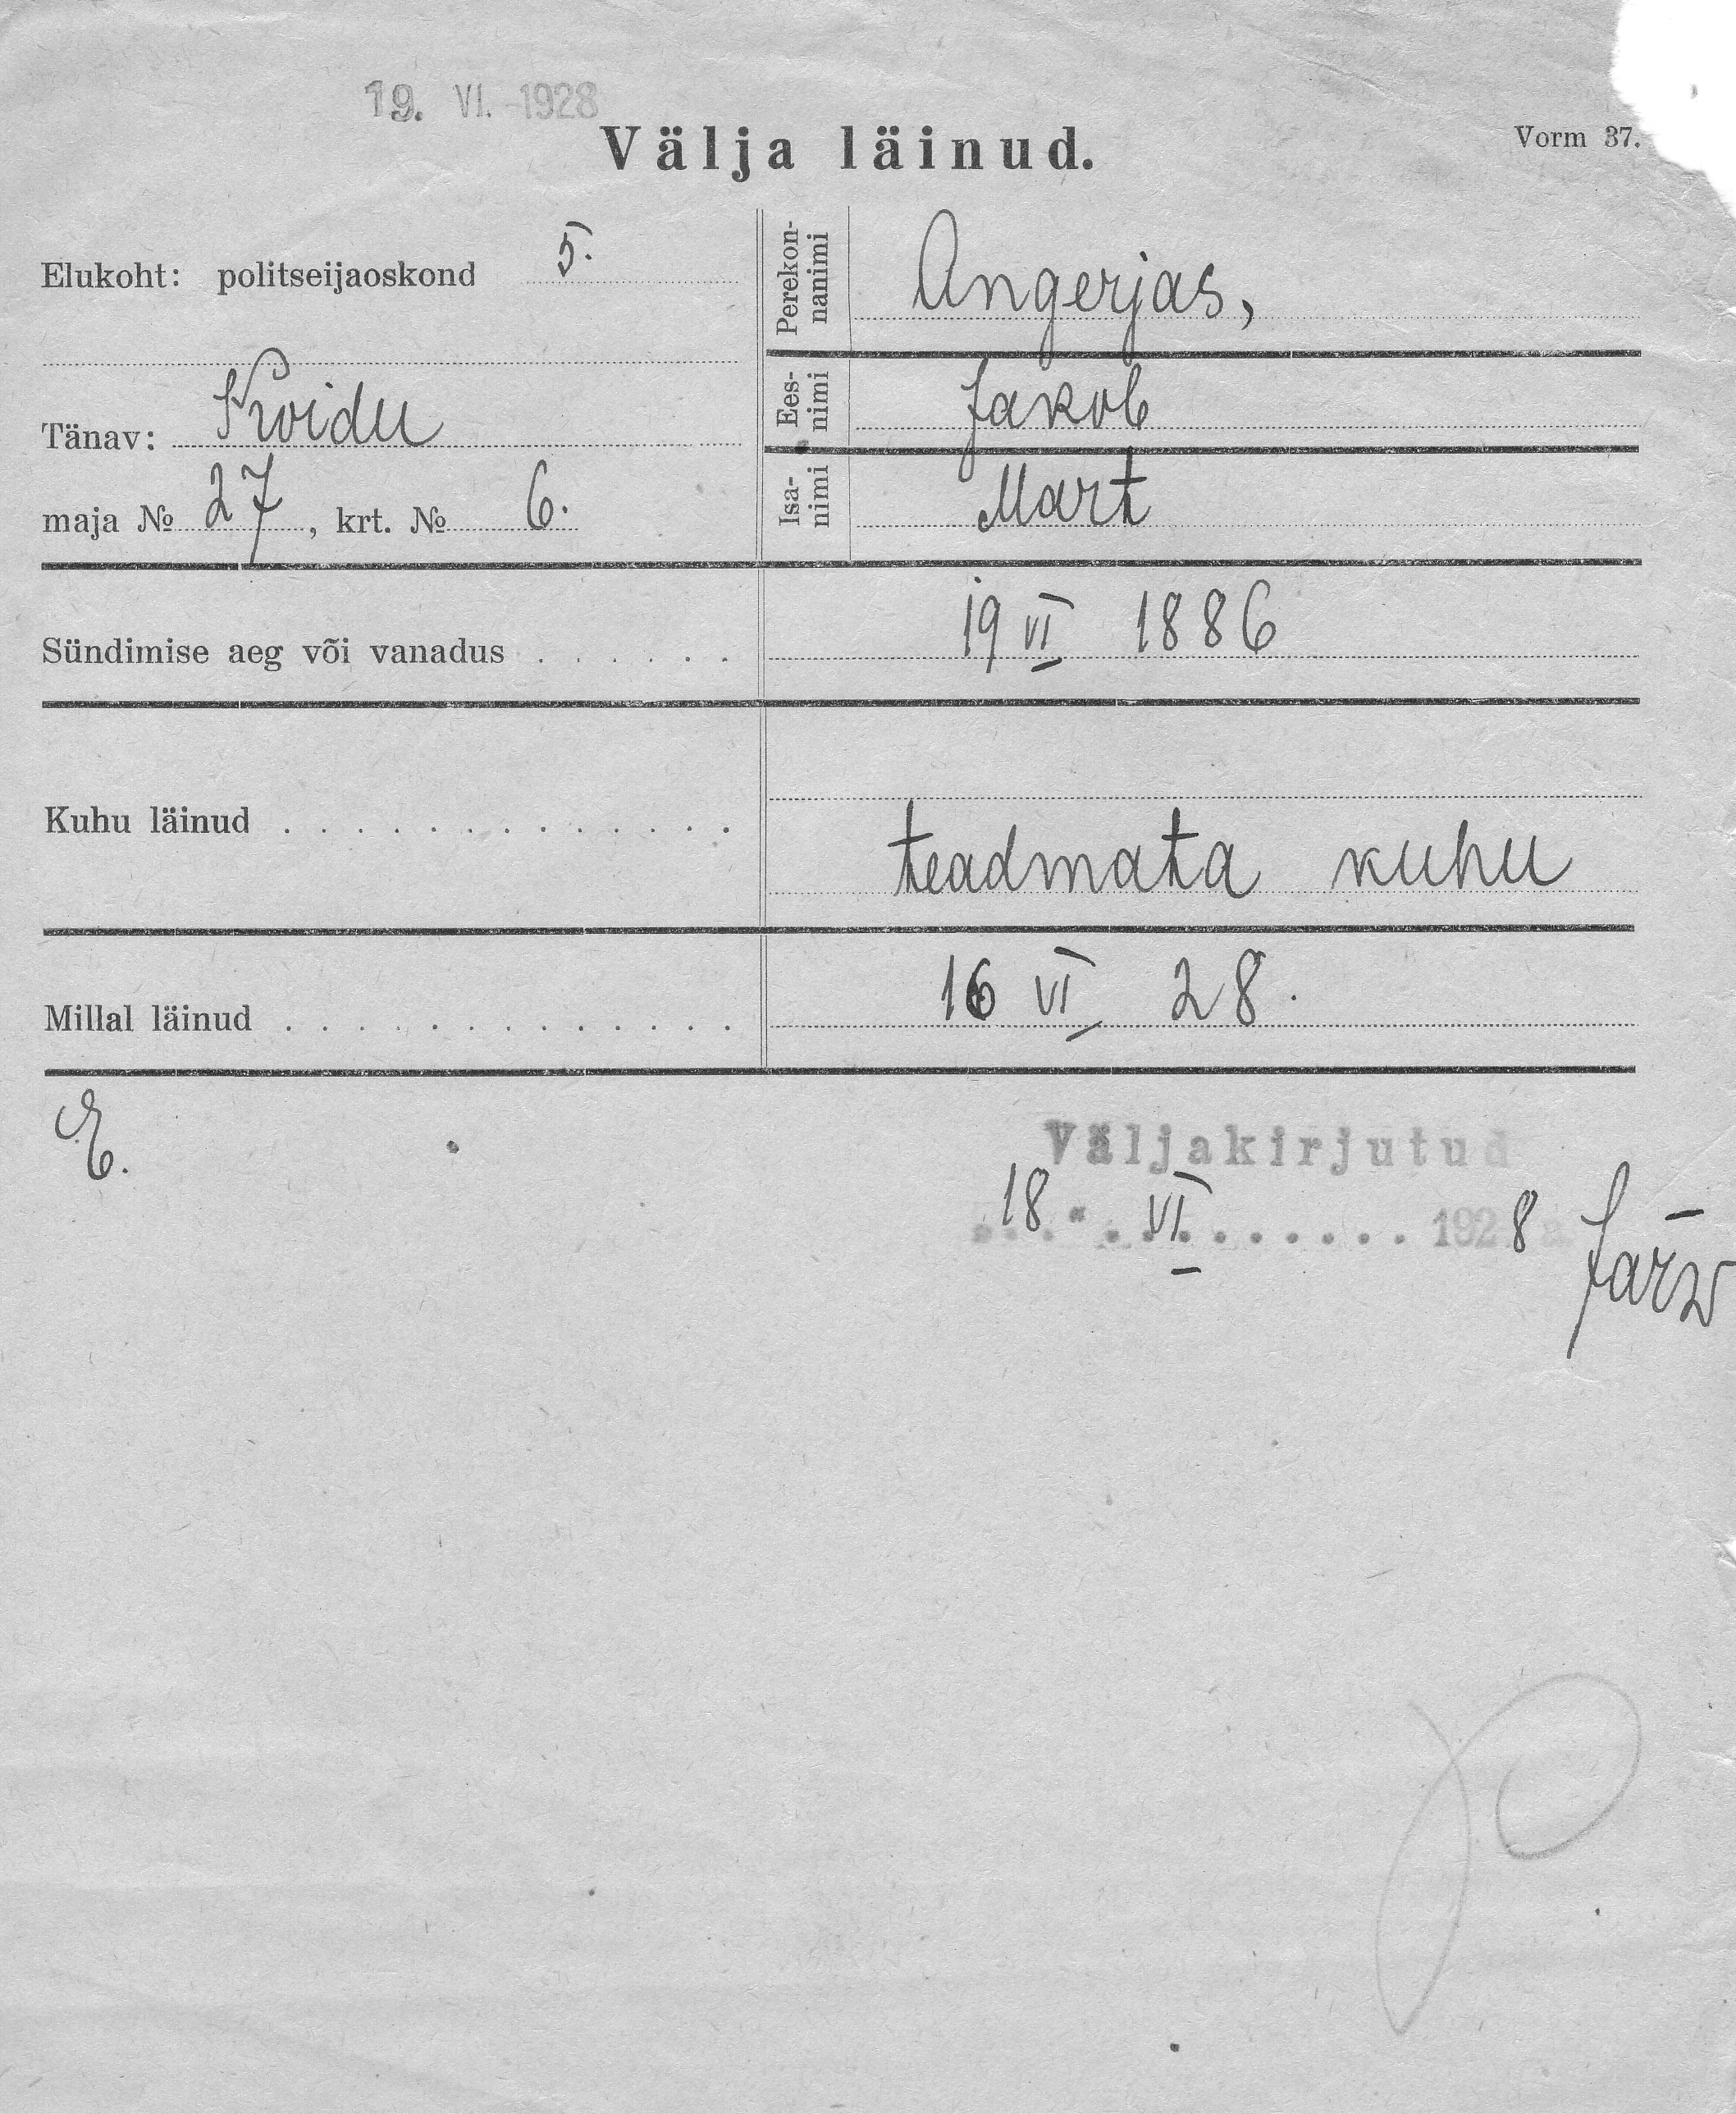 19. VI. 1928
Välja läinud.
Vorm 37.
Elukoht: politseijaoskond 5.
Tänav: Koidu
maja № 27, krt. № 6.
Perekonnanimi Angerjas,
Eesnimi Jakob
Isanimi Mart
Sündimise aeg või vanadus . . . . . . 19 VI 1886
Kuhu läinud . . . . . . . . . . . . . teadmata kuhu
Millal läinud . . . . . . . . . . . . . 16 VI 28.
E.
Väljakirjutud
18 " VI 1928
Järw